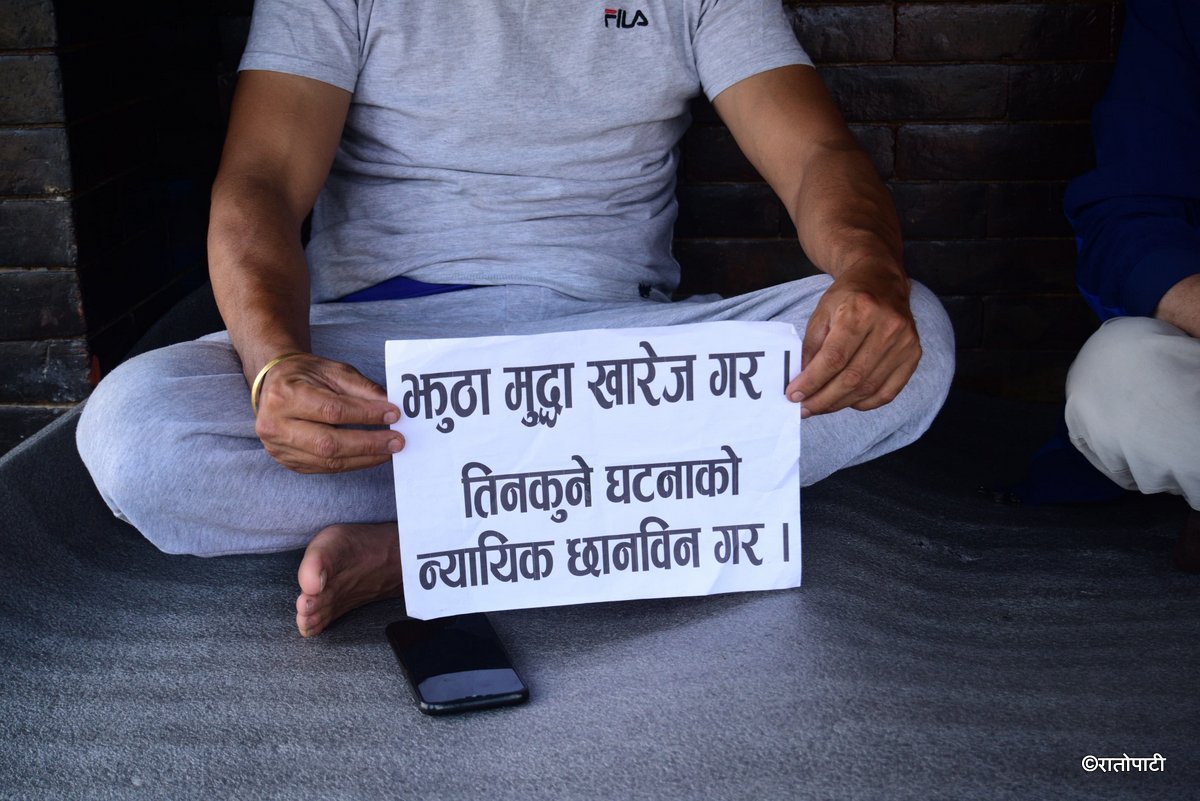 FILA
झुठा मुद्दा खारेज गर ।
तिनकुने घटनाको
न्यायिक छानविन गर ।
©रातोपाटी